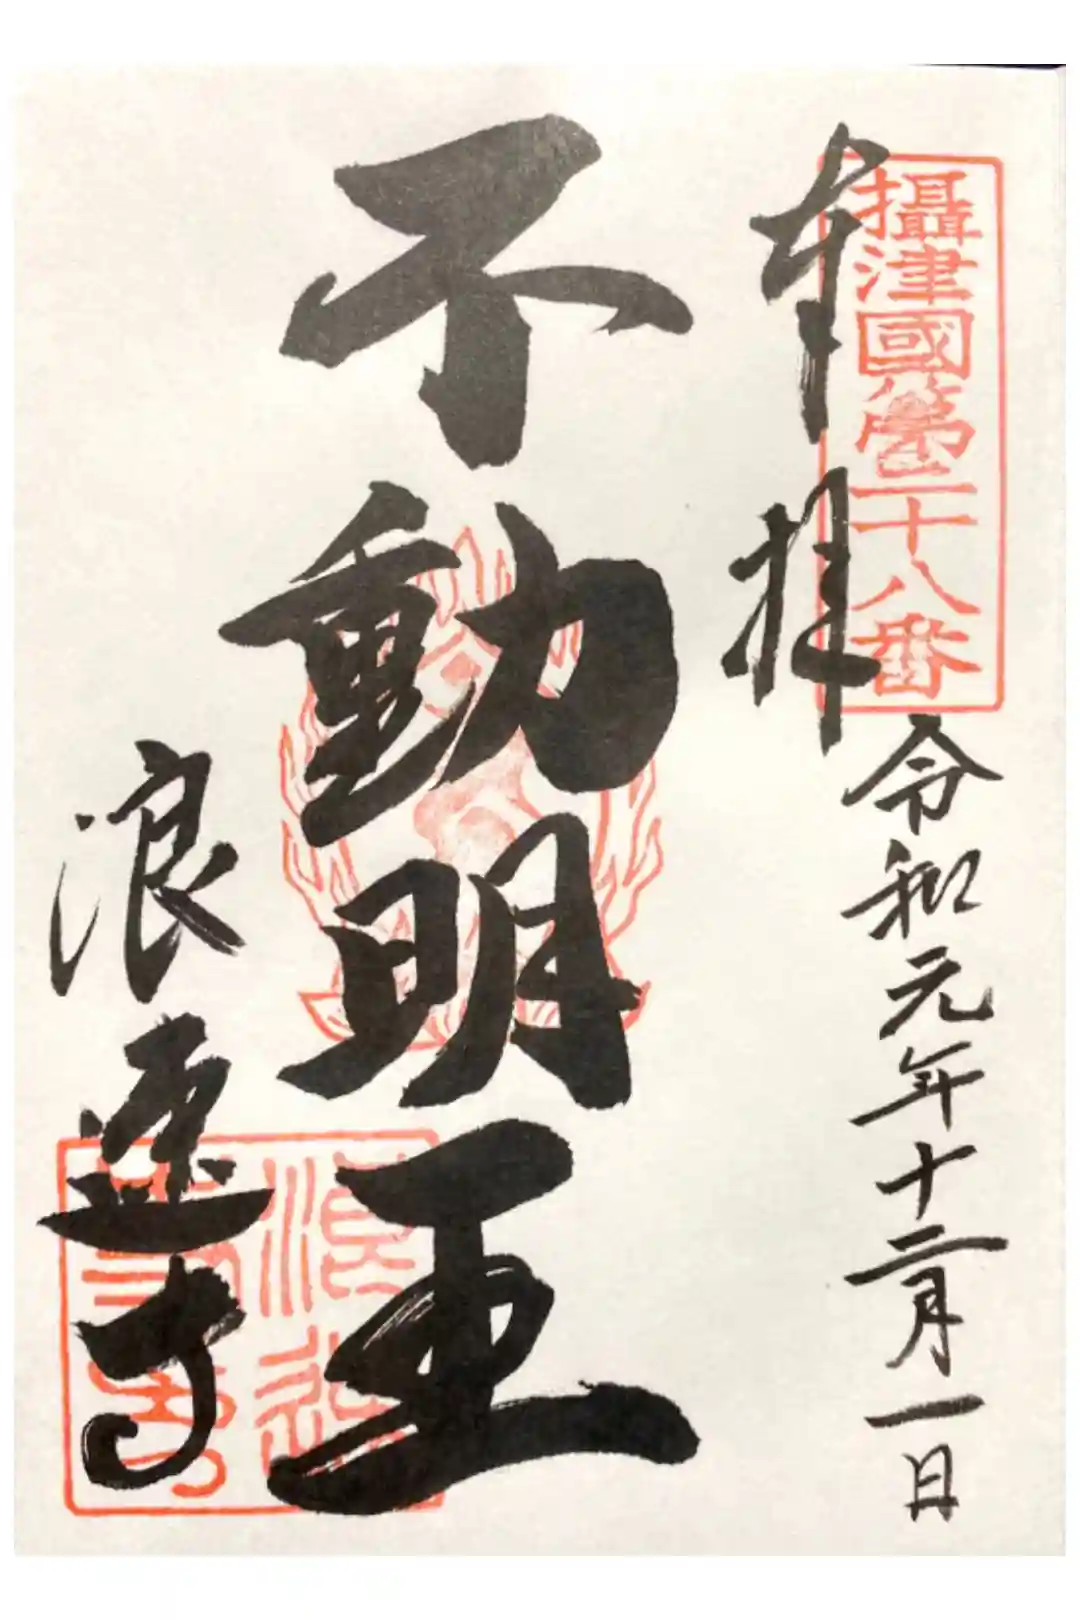 攝津國第二十八番
奉拝
令和元年十二月一日
不動明王
浪速寺